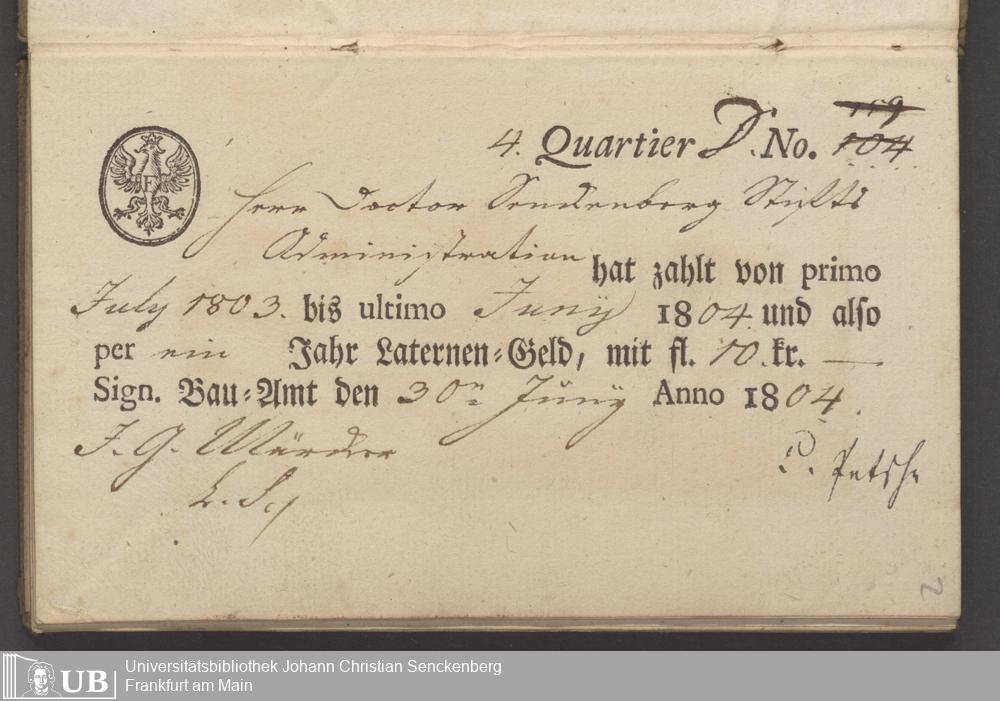 119
4. Quartier D. No. 104
F
Herr Doctor Senckenberg Stiffts
Administration hat zahlt von primo
July 1803. bis ultimo Junÿ 1804 und also
per ein Jahr Laternen-Geld, mit fl. 10. kr. —
Sign. Bau-Amt den 30n Junÿ Anno 1804.
J. G.
2
UB Universitätsbibliothek Johann Christian Senckenberg
Frankfurt am Main